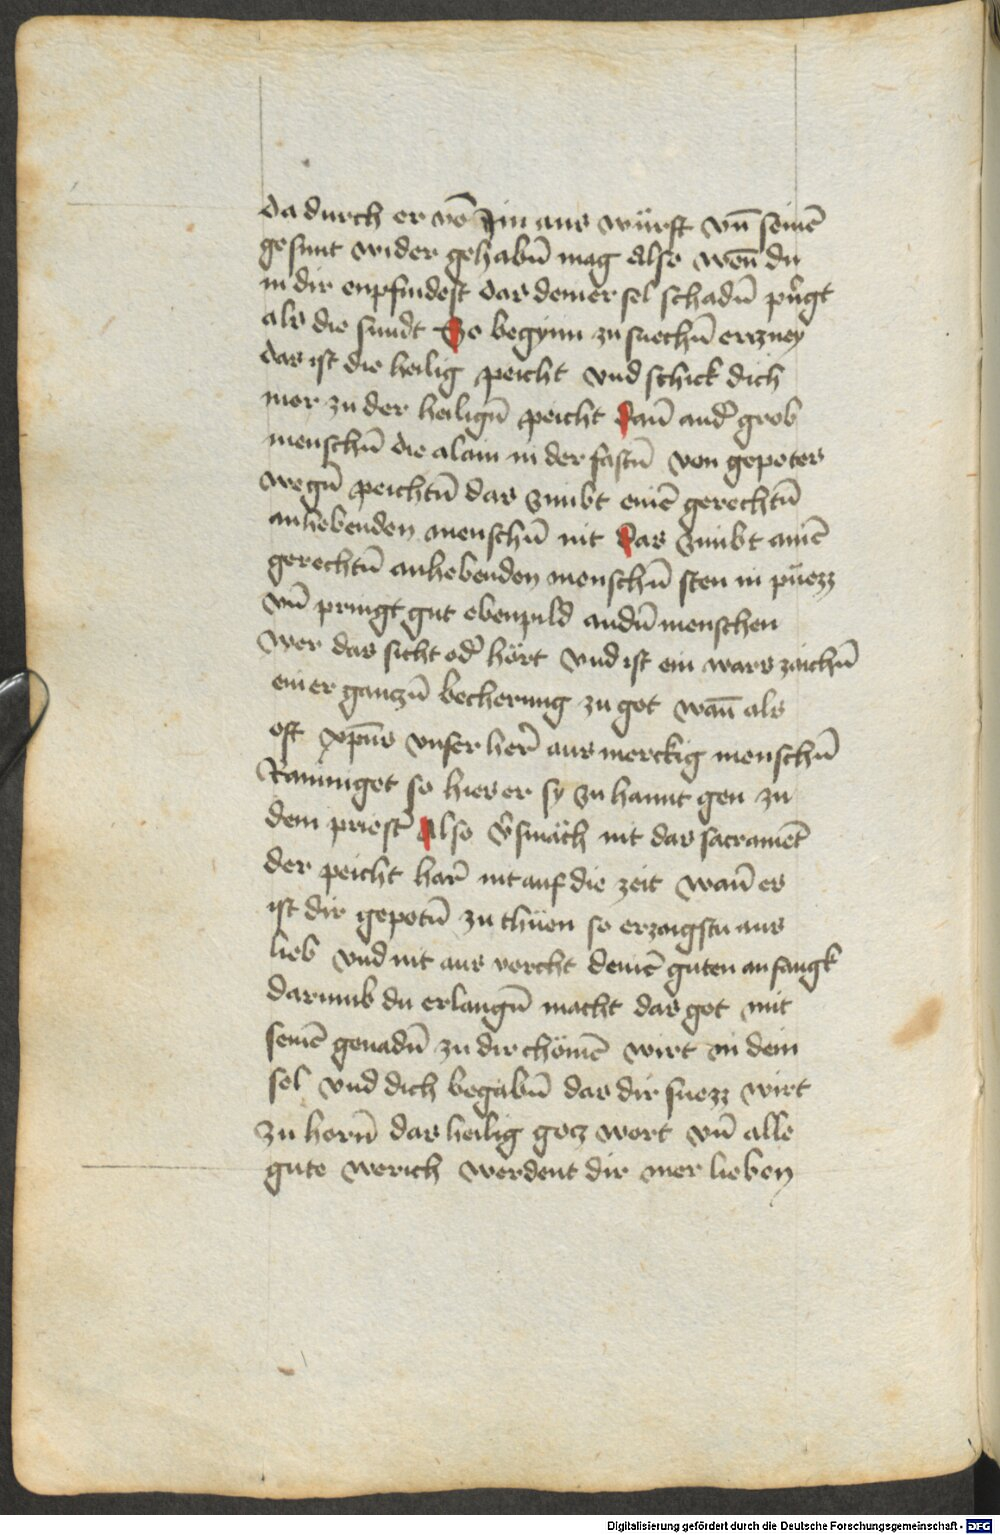 da durch er vō Jm aus würft vn̄ seinē
gesunt wider gehabn̄ mag Also wen̄ du
in dir enpfindest das deiner sel schadn̄ pn̄gt
als die sundt So begynn zu suechn̄ erczney
das ist die heilig peicht vnd schick dich
mer zu der heilign̄ peicht dan̄ and̄ grob
menschn̄ die alain in der fastn̄ von gepotes
wegn̄ peichtn̄ das zimbt einē gerechtn̄
anhebenden menschn̄ nit das zimbt ainē
gerechtn̄ anhebenden menschn̄ sten in püezz
vn̄ pringt gut ebenpild andn̄ menschen
wer das sicht od̄ hört vnd ist ein wars zaichn̄
einer ganczn̄ becherung zu got wan̄ als
oft xp̄us vnser her̄ aus merckig menschn̄
Rainiget so hies er sy zu hannt gen zu
dem priest̄ Also v̄smäch nit das sacramēt
der peicht har̄ nit auf die zeit wan̄ es
ist dir gepotn̄ zu thüen so erzaigstu aus
lieb vnd nit aus vorcht deinē guten anfangk
darumb du erlangn̄ macht das got mit
seinē genadn̄ zu dir chömē wirt in dein
sel vnd dich begabn̄ das dir suezz wirt
zu horn̄ das heilig gocz wort vn̄ alle
gute werich werdent dir mer lieben
Digitalisierung gefördert durch die Deutsche Forschungsgemeinschaft - DFG